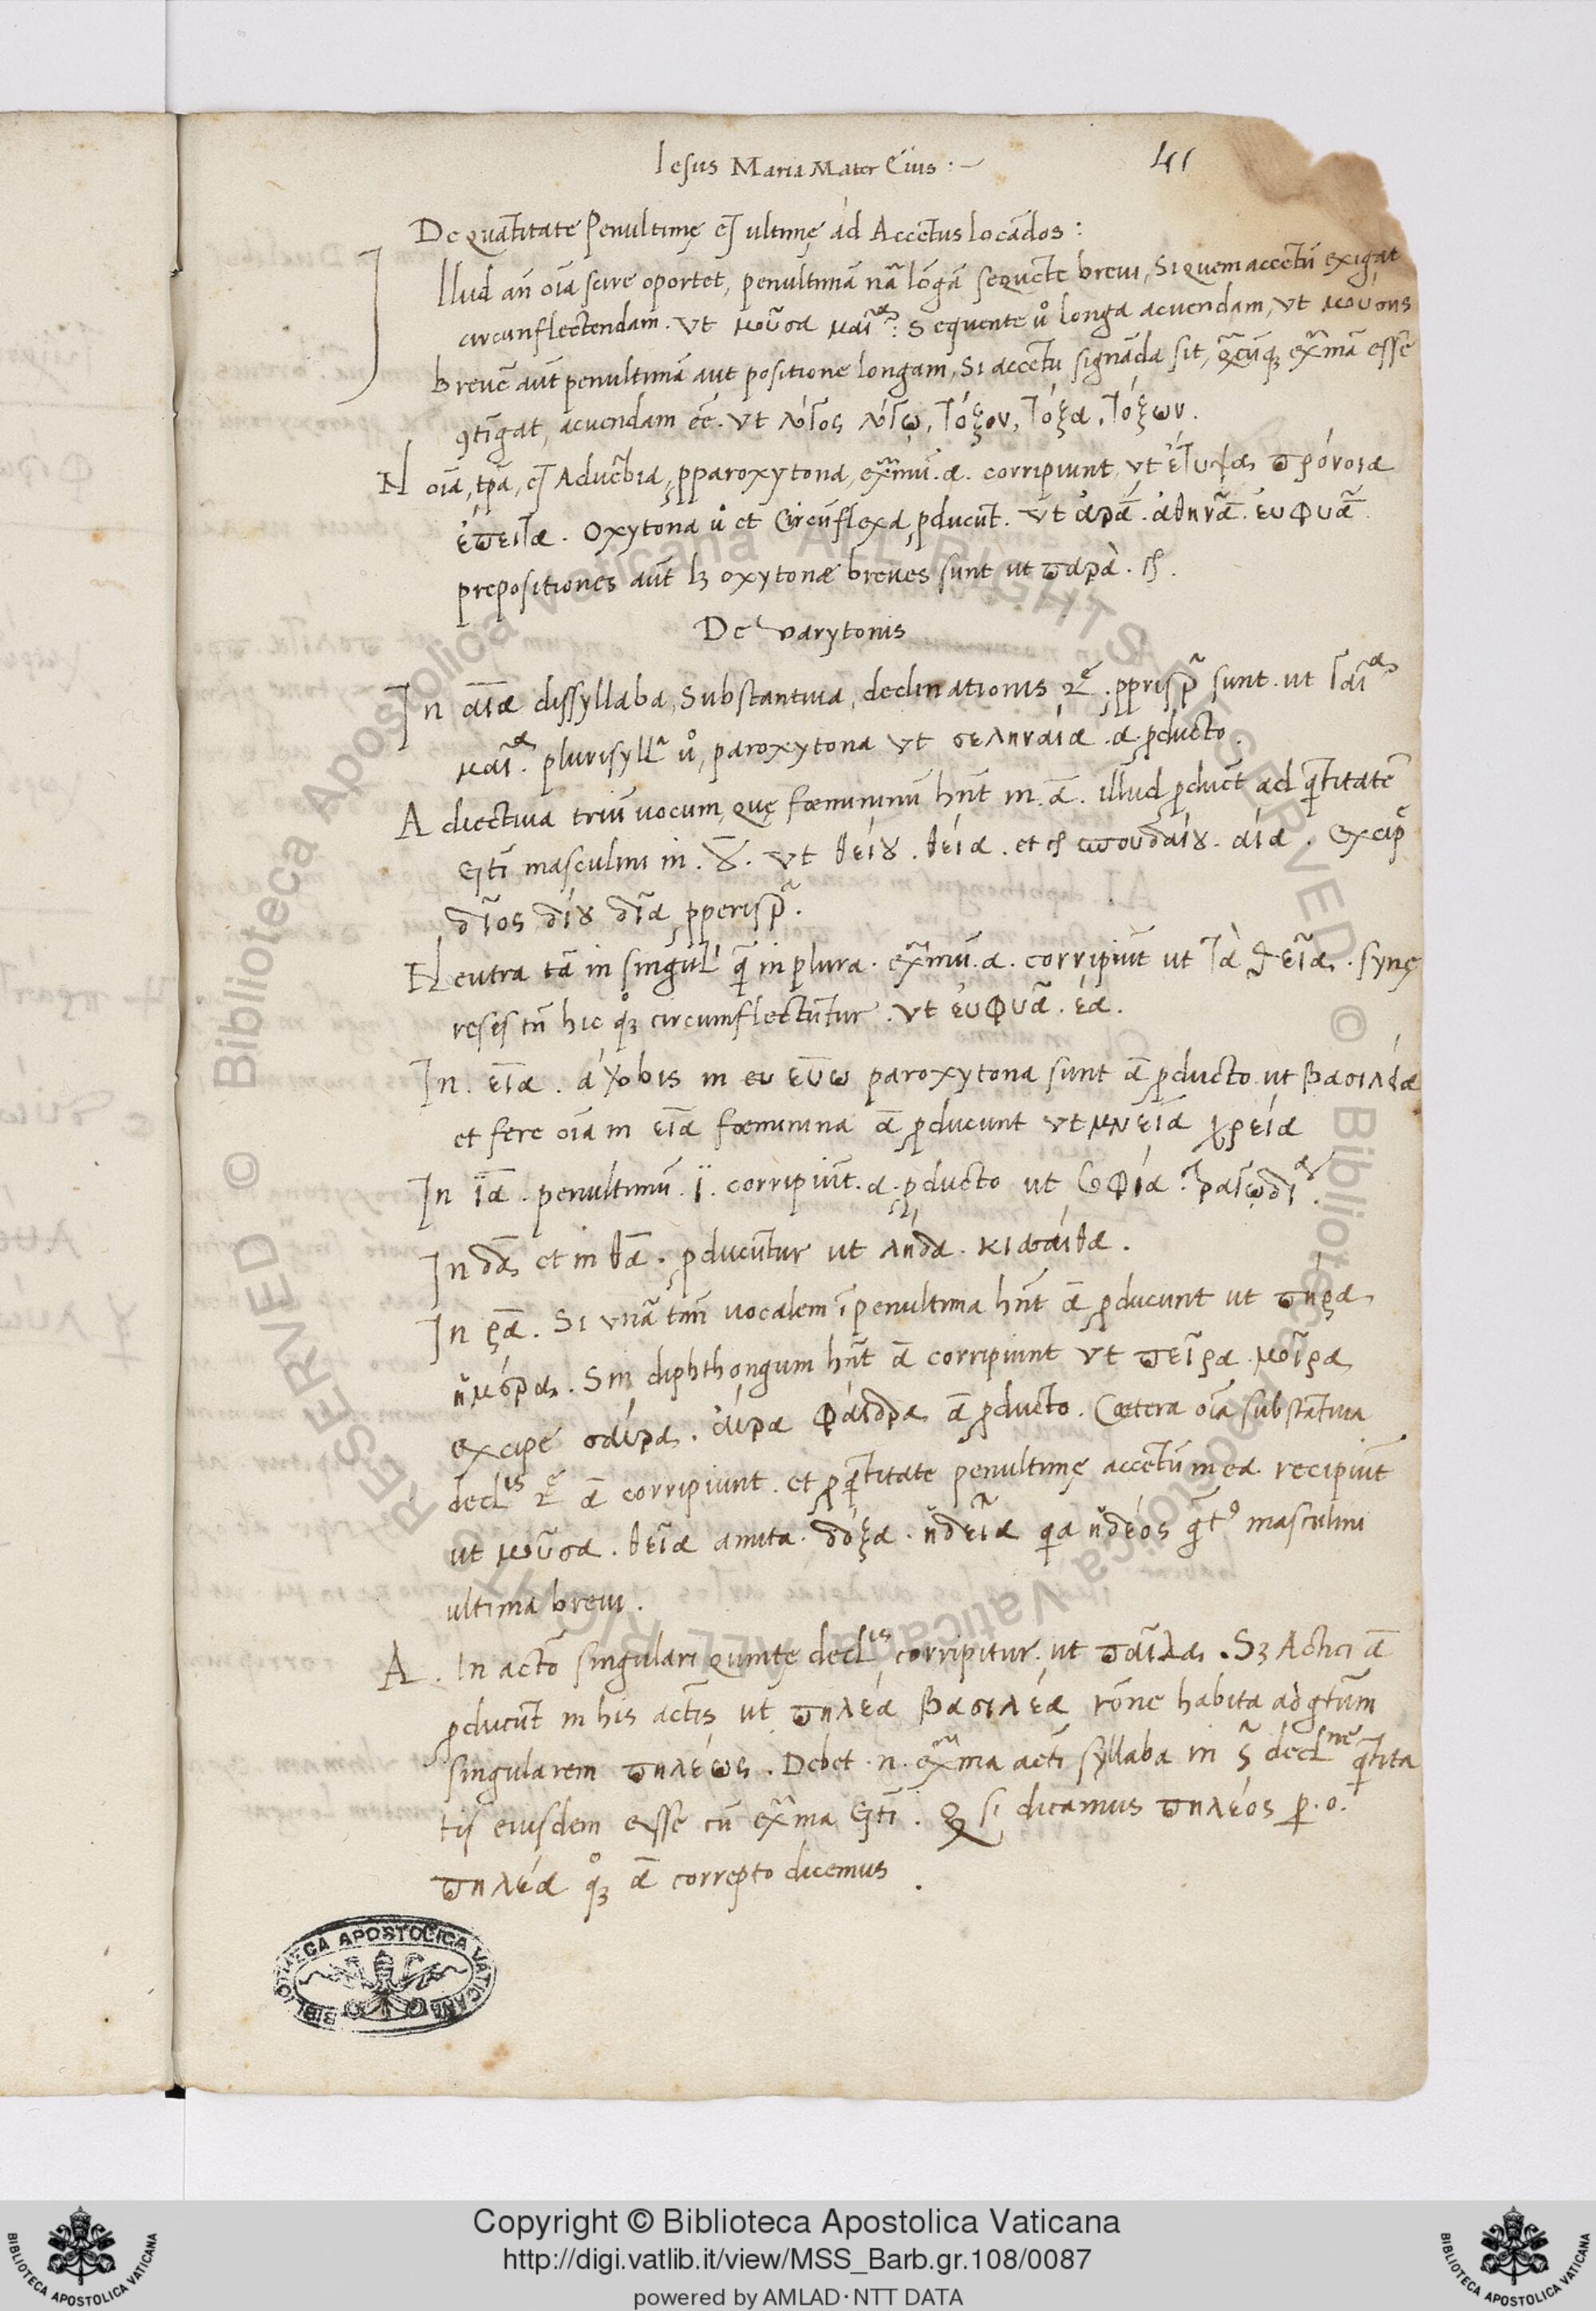 Iesus Maria Mater Eius :
41
De quātitate Penultimę et ultimę ad Accētus locādos :
Illud añ oīa scire oportet, penultimā nā lōgā sequēte brevi, Si quem accētū exigat
circunflectendam. Ut μοῦσα μαῖα : Sequente ů longa acuendam, Ut μούσης
Brevē aūt penultimā aut positione longam, Si accētu signāda sit, exᵃmā esse
ꝯtīgat, acuendam eē. Ut λόγος λόγῳ, τόξον, τόξα, τόξων.
Noīa, et Aduerbia, ꝓparoxytona, exᵃmū .α. corripiunt, ut ἔτυψα πρόνοια
ἔπειτα. Oxytona ů et Circūflexa ꝓducūt. Ut ἀρᾱ. ἀθηνᾶ. ἐυφυᾶ
prepositiones aūt lꝫ oxytonæ breves sunt ut παρὰ.
De varytonis
In αια dissyllaba, Substantiva, declinationis 2ę ꝓprispᵃ sunt. ut γαῖα
μαῖα. plurisyllᵃ ů, paroxytona Ut σεληναία .α. ꝓducto.
Adiectiva triū vocum, quę fœmininū hn̄t in .ᾱ. illud ꝓducūt ad q̄titatē
Gtī masculini in .ȣ. Ut θείȣ. θεία. et σπουδαίȣ. αία. Excipę
δῖος δίȣ δῖα ꝓperispᵃ.
Neutra tā in singulⁱ q̄ in plura. exᵃmū .α. corripiūt ut τὰ θεῖα. synę
resis tn̄ hic qͦꝫ circumflectūtur. Ut ἐυφυᾶ. έα.
In. εια. a ỽobis in ευ ευω paroxytona sunt ᾱ ꝓducto. ut βασιλεία
et fere oīa in εια fœminina ᾱ ꝓducunt Ut μνεία χρεία
In ια. penultimū .ϊ. corripiūt .α. ꝓducto ut σοφία. ῥαψῳδία.
In δα et in θα. ꝓducūtur ut λήδα. κισσαίθα.
In ρα. Si unā tm̄ vocalem ī penultima hn̄t ᾱ ꝓducunt ut πήρα
ἡμέρα. Sin diphthongum hn̄t ᾱ corripiunt Ut πεῖρα μοῖρα
excipe σαύρα. αύρα φαίδρα ᾱ ꝓducto. Cætera oīa substātiva
declⁱˢ 2ę ᾱ corripiunt. et ꝓ q̄titate penultimę accētū in ea recipiūt
ut μοῦσα. θεῖα amita. δόξα. ἡδεῖα qia ἡδέος gtͦ masculini
ultima brevi.
A. In actō singulari quinte declⁱˢ corripitur. ut παῖδα. Sꝫ Attici ᾱ
ꝓducūt in his actīs ut πηλέα βασιλέα rōne habita ad gtūm
singularem πηλέως. Debet .n. exᵃma actī syllaba in 5 declⁿᵉ q̄tita
tis eiusdem esse cū exᵃma Gtī. Q si dicamus πηλέος ꝑ .ο.
πηλέα qͦꝫ ᾱ correpto dicemus.
BIBLIOTECA APOSTOLICA VATICANA
Copyright © Biblioteca Apostolica Vaticana
http://digi.vatlib.it/view/MSS_Barb.gr.108/0087
powered by AMLAD · NTT DATA